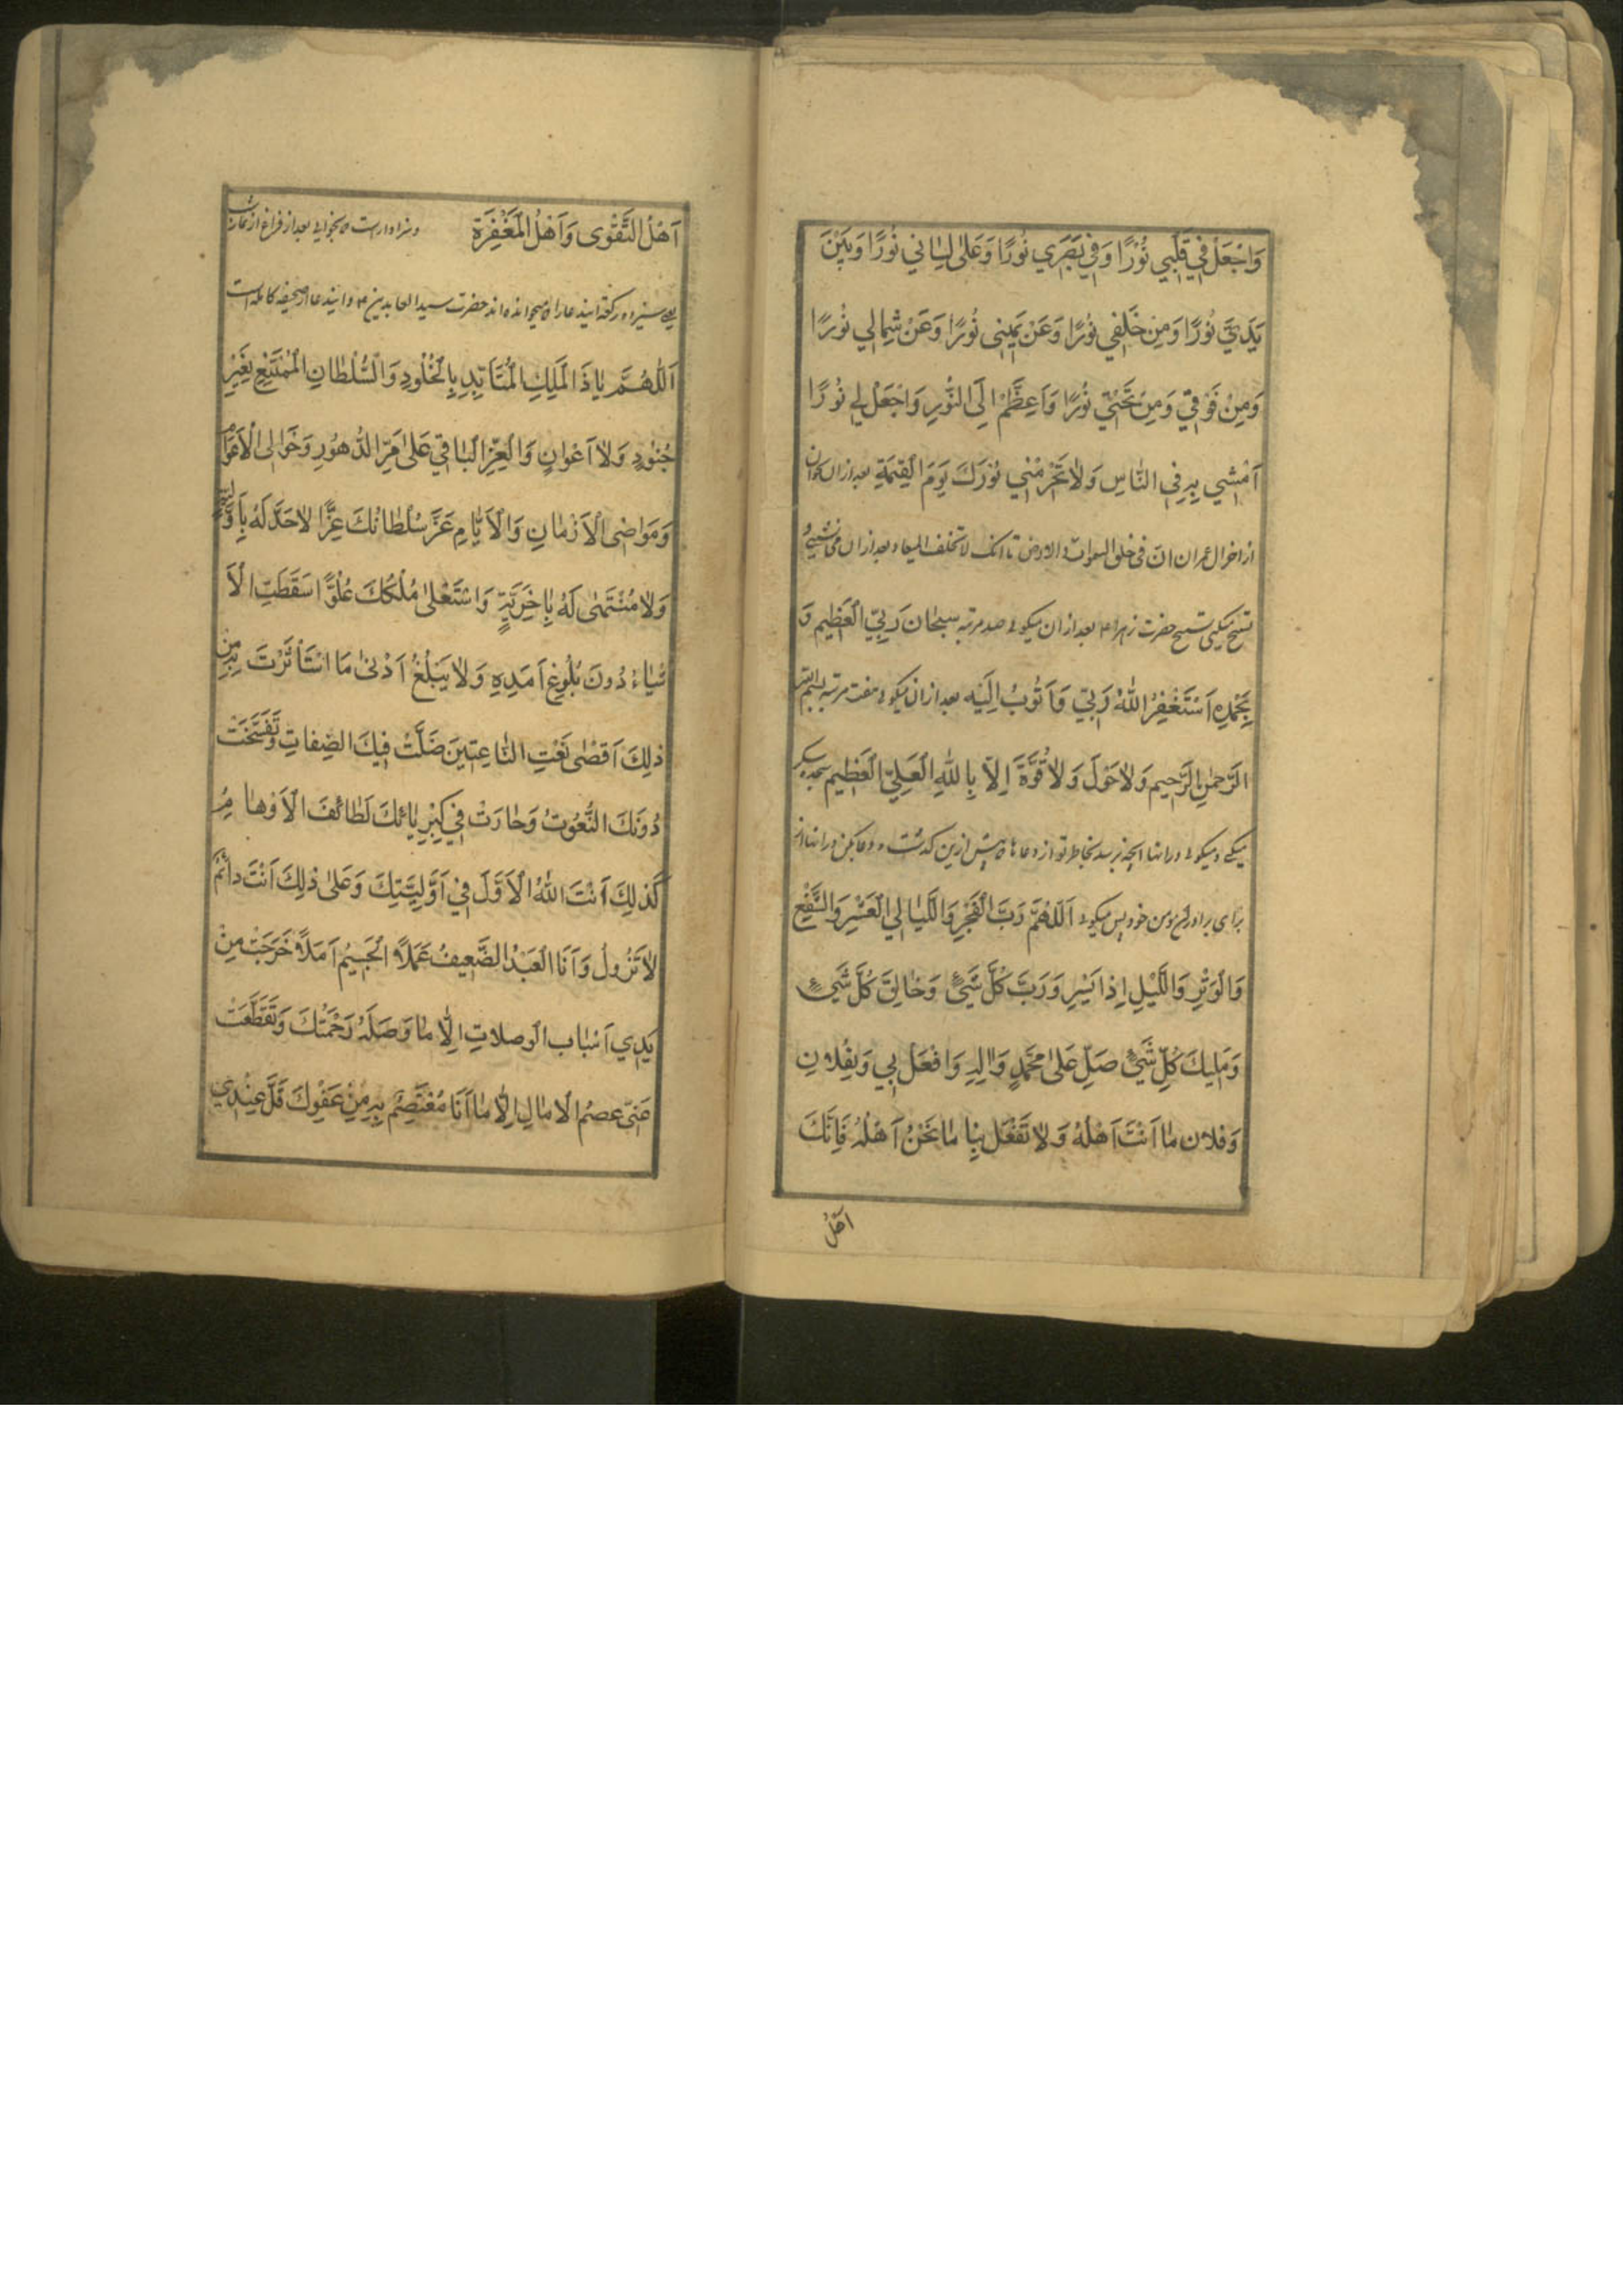 وَاجْعَلْ فِي قَلْبِي نُورًا وَفِي بَصَرِي نُورًا وَعَلىٰ لِسٰانِي نُورًا وَبَيْنَ
يَدَيَّ نُورًا وَمِنْ خَلْفِي نُورًا وَعَنْ يَمِينِي نُورًا وَعَنْ شِمٰالِي نُورًا
وَمِنْ فَوْقِي وَمِنْ تَحْتِي نُورًا وَاَعْظِمْ لِيَ النُّورَ وَاجْعَلْ لِي نُورًا
اَمْشِي بِهِ فِي النّٰاسِ وَلاٰ تَحْرِمْنِي نُورَكَ يَوْمَ الْقِيٰمَةِ بعد از ان بخوان
از اخر ال عمران انّ فی خلق السموات والارض تا انک لا تخلف المیعاد بعد از ان
تسبیح میکنی تسبیح حضرت زهرا ع بعد از ان میکوئی صد مرتبه سبحٰان رَبِّيَ الْعَظِيمِ وَ
بِحَمْدِهِ اَسْتَغْفِرُ اللهَ رَبِّي وَاَتُوبُ اِلَيْهِ بعد از ان میکوئی هفت مرتبه بِسْمِ اللهِ
الرَّحْمٰنِ الرَّحِيمِ وَلاٰ حَوْلَ وَلاٰ قُوَّةَ اِلاّٰ بِاللهِ الْعَلِيِّ الْعَظِيمِ سجده شکر
میکنی و میکوئی در انها انچه برسد بخاطر تو از دعاها که پیش ازین کذشت و دعا بکن در انها از
برای برادر مؤمن خود پس میکوئی اَللّٰهُمَّ رَبَّ الْفَجْرِ وَاللَّيٰالِي الْعَشْرِ وَالشَّفْعِ
وَالْوَتْرِ وَاللَّيْلِ اِذٰا يَسْرِ وَرَبَّ كُلِّ شَيْءٍ وَخٰالِقَ كُلِّ شَيْءٍ
وَمَلِيكَ كُلِّ شَيْءٍ صَلِّ عَلىٰ مُحَمَّدٍ وَاٰلِهِ وَافْعَلْ بِي وَبِفُلاٰنٍ
وَفُلاٰن مٰا اَنْتَ اَهْلُهُ وَلاٰ تَفْعَلْ بِنٰا مٰا نَحْنُ اَهْلُهُ فَاِنَّكَ
اَهْلُ
اَهْلُ التَّقْوى وَاَهْلُ الْمَغْفِرَة و سزاوار است که بخوانی بعد از فراغ از نماز
یعنی سیزده رکعت ایندعا را که میخوانده اند حضرت سید العابدین ع و ایندعا از صحیفه کامله است
اَللّٰهُمَّ يٰا ذَا الْمُلْكِ الْمُتَاَبِّدِ بِالْخُلُودِ وَالسُّلْطٰانِ الْمُمْتَنِعِ بِغَيْرِ
جُنُودٍ وَلاٰ اَعْوٰانٍ وَالْعِزِّ الْبٰاقِي عَلىٰ مَرِّ الدُّهُورِ وَخَوٰالِي الْاَعْوٰامِ
وَمَوٰاضِي الْاَزْمٰانِ وَالْاَيّٰامِ عَزَّ سُلْطٰانُكَ عِزًّا لاٰ حَدَّ لَهُ بِاَوَّلِيَّةٍ
وَلاٰ مُنْتَهىٰ لَهُ بِاٰخِرِيَّةٍ وَاسْتَعْلىٰ مُلْكُكَ عُلُوًّا سَقَطَتِ الْاَ
شْيٰاءُ دُونَ بُلُوغِ اَمَدِهِ وَلاٰ يَبْلُغُ اَدْنىٰ مَا اسْتَأْثَرْتَ بِهِ مِنْ
ذٰلِكَ اَقْصٰى نَعْتِ النّٰاعِتِينَ ضَلَّتْ فِيكَ الصِّفٰاتُ وَتَفَسَّخَتْ
دُونَكَ النُّعُوتُ وَحٰارَتْ فِي كِبْرِيٰائِكَ لَطٰائِفُ الْاَوْهٰامِ
كَذٰلِكَ اَنْتَ اللهُ الْاَوَّلُ فِي اَوَّلِيَّتِكَ وَعَلىٰ ذٰلِكَ اَنْتَ دٰائِمٌ
لاٰ تَزُولُ وَاَنَا الْعَبْدُ الضَّعِيفُ عَمَلاً الْجَسِيمُ اَمَلاً خَرَجَتْ مِنْ
يَدِي اَسْبٰاب الْوصلاٰتِ اِلاّٰ مٰا وَصَلَهُ رَحْمَتُكَ وَتَقَطَّعَتْ
عَنِّي عصمُ الْاٰمٰالِ اِلاّٰ مٰا اَنَا مُعْتَصِمٌ بِهِ مِنْ عَفْوِكَ قَلَّ عِنْدِي